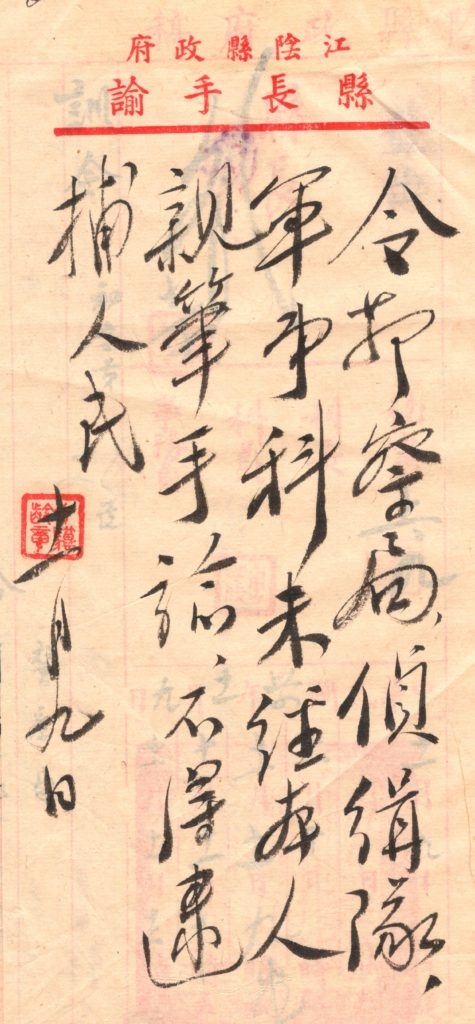 江陰縣政府
縣長手諭
令警察局、偵緝隊、
軍事科未經本人
親筆手諭、不得逮
捕人民
十一月九日